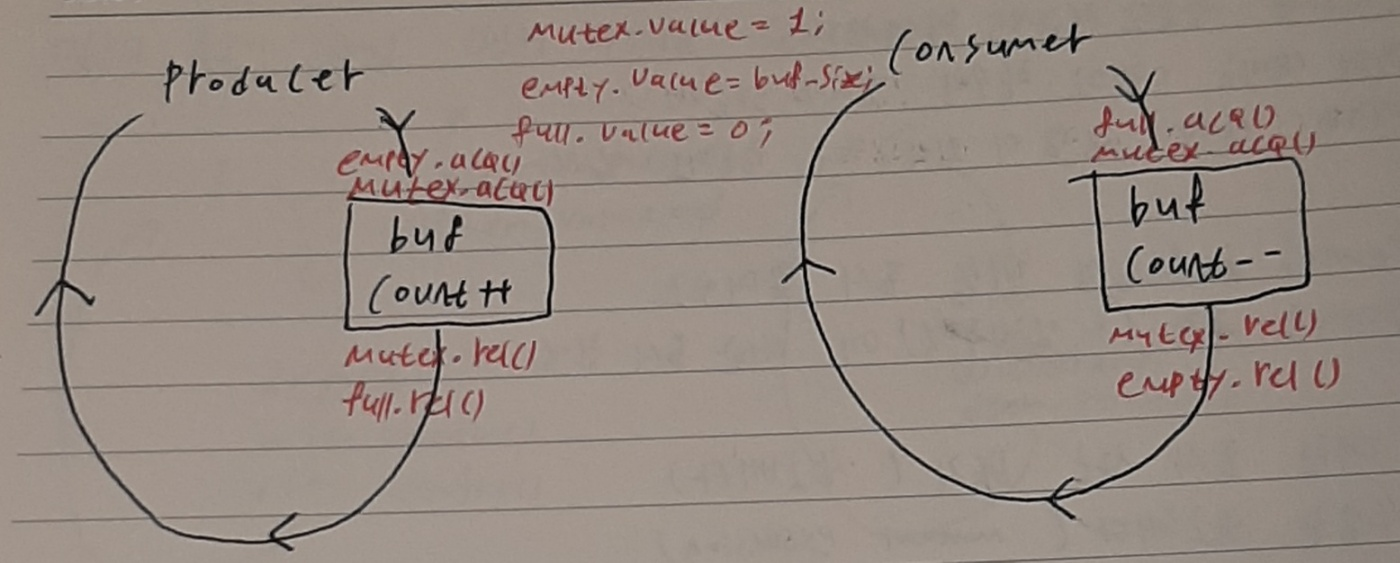 Producer
empty.acq()
Mutex.acq()
buf
Count++
Mutex.rel()
full.rel()
Mutex.value = 1;
empty.value = buf-size;
full.value = 0;
Consumer
full.acq()
mutex.acq()
buf
Count--
Mutex.rel()
empty.rel()